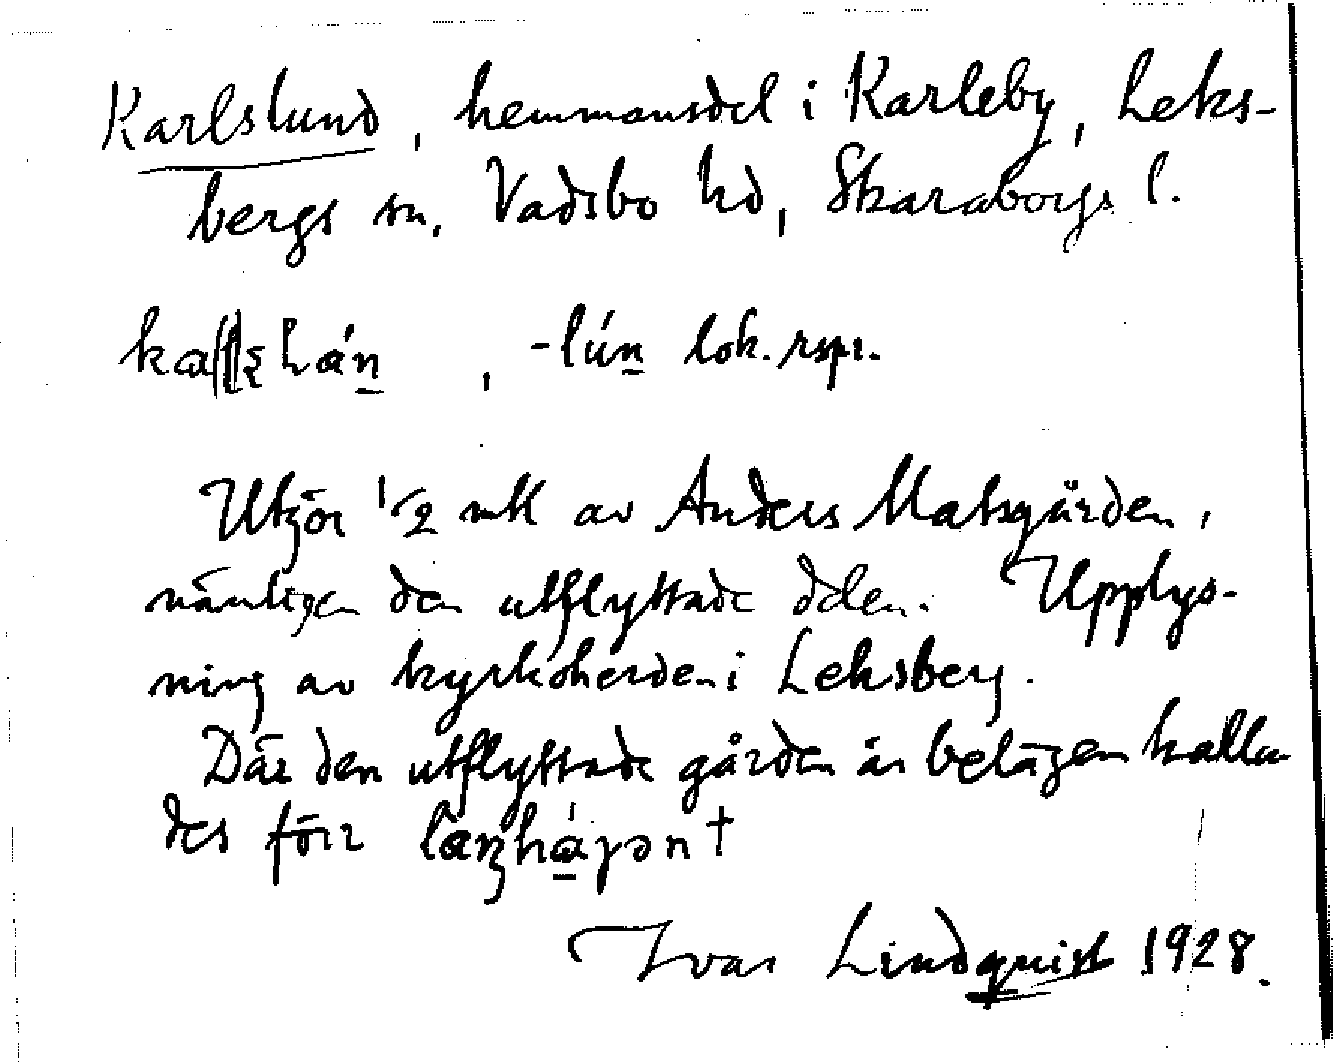 Karlslund, hemmansdel i Karleby, Leks-
bergs sn, Vadsbo hd, Skaraborgs l.
, -lún lok. rspr.
Utgör 1/2 mtl av Anders Matsgården,
nämligen den utflyttade delen. Upplys-
ning av kyrkoherden i Leksberg.
Där den utflyttade gården är belägen kalla-
des förr
Ivar Lindquist 1928.